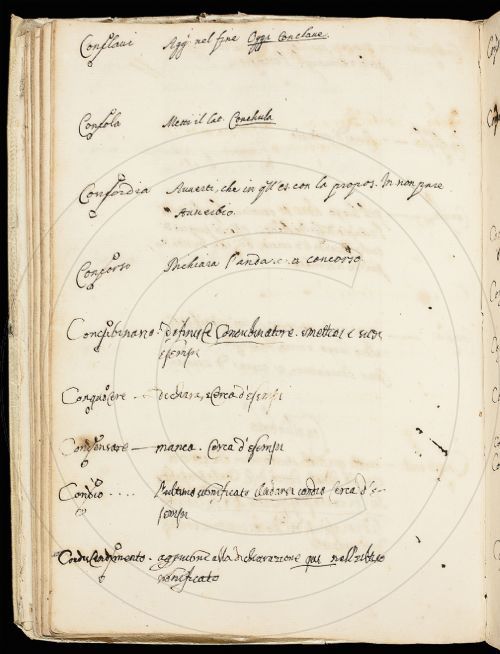 Conclavi Agg. nel fine Oggi Conclave.
Metti il lat. Conchula
Concordia Avverti, che in qll' es. con la propos. In non pare
Avverbio.
Concorso Dichiara l'andare a concorso
Concubinario. definisce Concubinatore. mettesi e suoi
esempi
Conquocere dichiara, e Cerca d'esempi
Condensare — manca. Cerca d'esempi
Condio .... l'ultimo significato Cerca d'e-
sempi
Condiscendimento. aggiugnere alla dichiarazione qui nell' istesso
significato